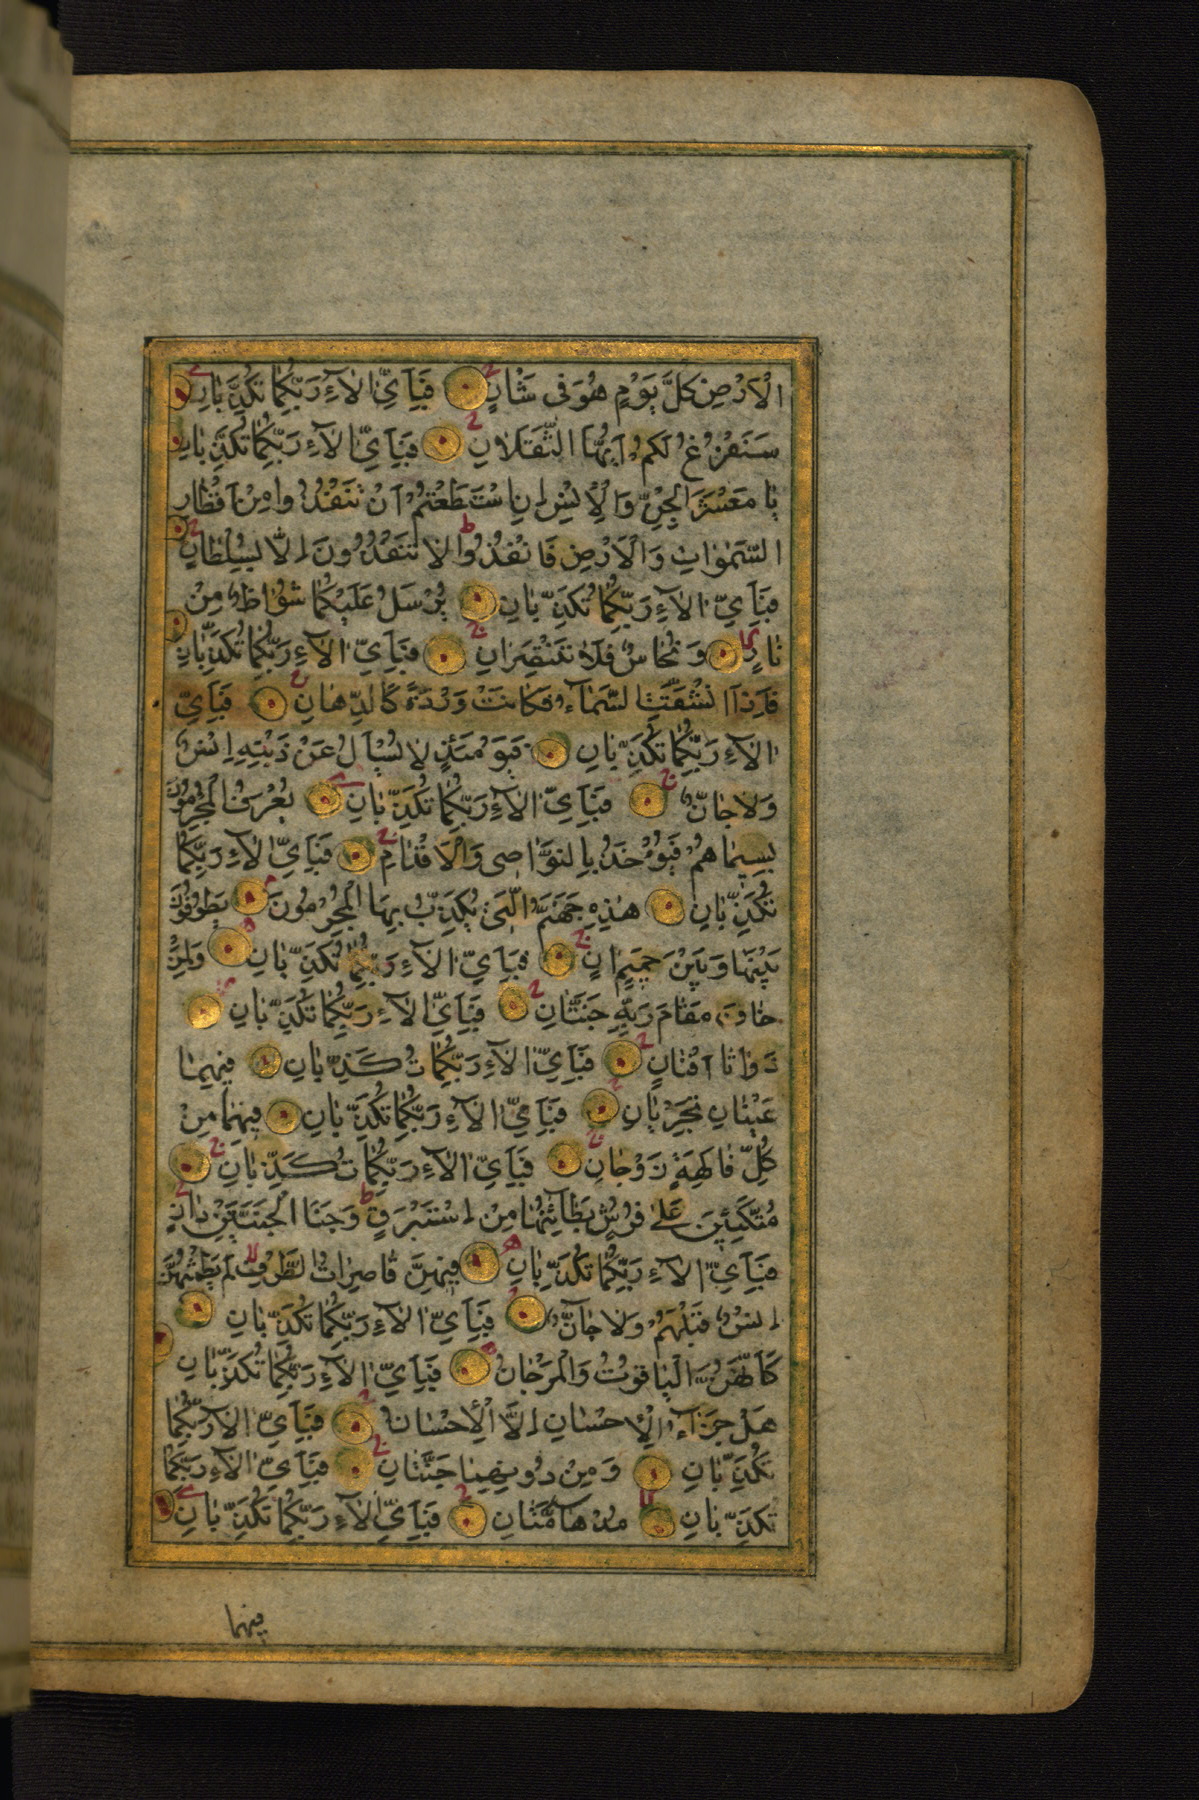 الْاَرْضِ كُلَّ يَوْمٍ هُوَ فى شَاْنٍ فَبِاَىِّ اٰلآٰءِ رَبِّكُمٰا تُكَذِّبٰانِ
سَنَفْرُغُ لَكُمْ اَيُّهَا الثَّقَلاٰنِ فَبِاَىِّ اٰلآٰءِ رَبِّكُمٰا تُكَذِّبٰانِ
يٰا مَعْشَرَ الْجِنِّ وَالْاِنْسِ اِنِ اسْتَطَعْتُمْ اَنْ تَنْفُذُوا مِنْ اَقْطٰارِ
السَّمٰوٰاتِ وَالْاَرْضِ فَانْفُذُوا لاٰ تَنْفُذُونَ اِلاّٰ بِسُلْطٰانٍ
فَبِاَىِّ اٰلآٰءِ رَبِّكُمٰا تُكَذِّبٰانِ يُرْسَلُ عَلَيْكُمٰا شُوٰاظٌ مِنْ
نٰارٍ وَنُحٰاسٌ فَلاٰ تَنْتَصِرٰانِ فَبِاَىِّ اٰلآٰءِ رَبِّكُمٰا تُكَذِّبٰانِ
فَاِذَا انْشَقَّتِ السَّمٰٓاءُ فَكٰانَتْ وَرْدَةً كَالدِّهٰانِ فَبِاَىِّ
اٰلآٰءِ رَبِّكُمٰا تُكَذِّبٰانِ فَيَوْمَئِذٍ لاٰ يُسْاَلُ عَنْ ذَنْبِهِ اِنْسٌ
وَلاٰ جٰانٌّ فَبِاَىِّ اٰلآٰءِ رَبِّكُمٰا تُكَذِّبٰانِ يُعْرَفُ الْمُجْرِمُونَ
بِسِيمٰاهُمْ فَيُؤْخَذُ بِالنَّوٰاصى وَالْاَقْدٰامِ فَبِاَىِّ اٰلآٰءِ رَبِّكُمٰا
تُكَذِّبٰانِ هٰذِهِ جَهَنَّمُ الَّتى يُكَذِّبُ بِهَا الْمُجْرِمُونَ يَطُوفُونَ
بَيْنَهٰا وَبَيْنَ حَمِيمٍ اٰنٍ فَبِاَىِّ اٰلآٰءِ رَبِّكُمٰا تُكَذِّبٰانِ وَلِمَنْ
خٰافَ مَقٰامَ رَبِّهِ جَنَّتٰانِ فَبِاَىِّ اٰلآٰءِ رَبِّكُمٰا تُكَذِّبٰانِ
ذَوٰاتٰا اَفْنٰانٍ فَبِاَىِّ اٰلآٰءِ رَبِّكُمٰا تُكَذِّبٰانِ فِيهِمٰا
عَيْنٰانِ تَجْرِيٰانِ فَبِاَىِّ اٰلآٰءِ رَبِّكُمٰا تُكَذِّبٰانِ فِيهِمٰا مِنْ
كُلِّ فٰاكِهَةٍ زَوْجٰانِ فَبِاَىِّ اٰلآٰءِ رَبِّكُمٰا تُكَذِّبٰانِ
مُتَّكِئِينَ عَلىٰ فُرُشٍ بَطٰٓائِنُهٰا مِنْ اِسْتَبْرَقٍ وَجَنَا الْجَنَّتَيْنِ دٰانٍ
فَبِاَىِّ اٰلآٰءِ رَبِّكُمٰا تُكَذِّبٰانِ فِيهِنَّ قٰاصِرٰاتُ الطَّرْفِ لَمْ يَطْمِثْهُنَّ
اِنْسٌ قَبْلَهُمْ وَلاٰ جٰانٌّ فَبِاَىِّ اٰلآٰءِ رَبِّكُمٰا تُكَذِّبٰانِ
كَاَنَّهُنَّ الْيٰاقُوتُ وَالْمَرْجٰانُ فَبِاَىِّ اٰلآٰءِ رَبِّكُمٰا تُكَذِّبٰانِ
هَلْ جَزٰٓاءُ الْاِحْسٰانِ اِلَّا الْاِحْسٰانُ فَبِاَىِّ اٰلآٰءِ رَبِّكُمٰا
تُكَذِّبٰانِ وَمِنْ دُونِهِمٰا جَنَّتٰانِ فَبِاَىِّ اٰلآٰءِ رَبِّكُمٰا
تُكَذِّبٰانِ مُدْهٰٓامَّتٰانِ فَبِاَىِّ اٰلآٰءِ رَبِّكُمٰا تُكَذِّبٰانِ
فيهما